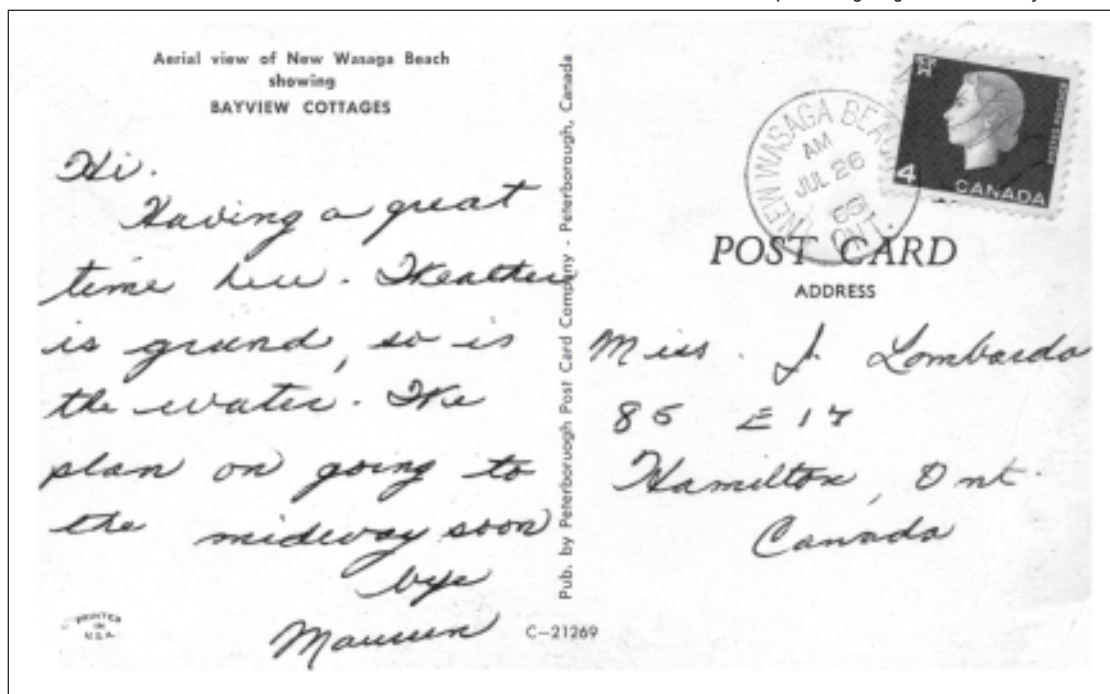 Aerial view of New Wasaga Beach
showing
BAYVIEW COTTAGES
Hi.
Having a great
time here. Weather
is grand, so is
the water. We
plan on going to
the midway soon
bye
Maureen
PRINTED
IN
U.S.A.
Pub. by Peterborough Post Card Company - Peterborough, Canada
C-21269
NEW WASAGA BEACH
AM
JUL 26
ONT.
4
CANADA
POSTES POSTAGE
POST CARD
ADDRESS
Miss. J. Lombardo
85 E 17
Hamilton, Ont.
Canada